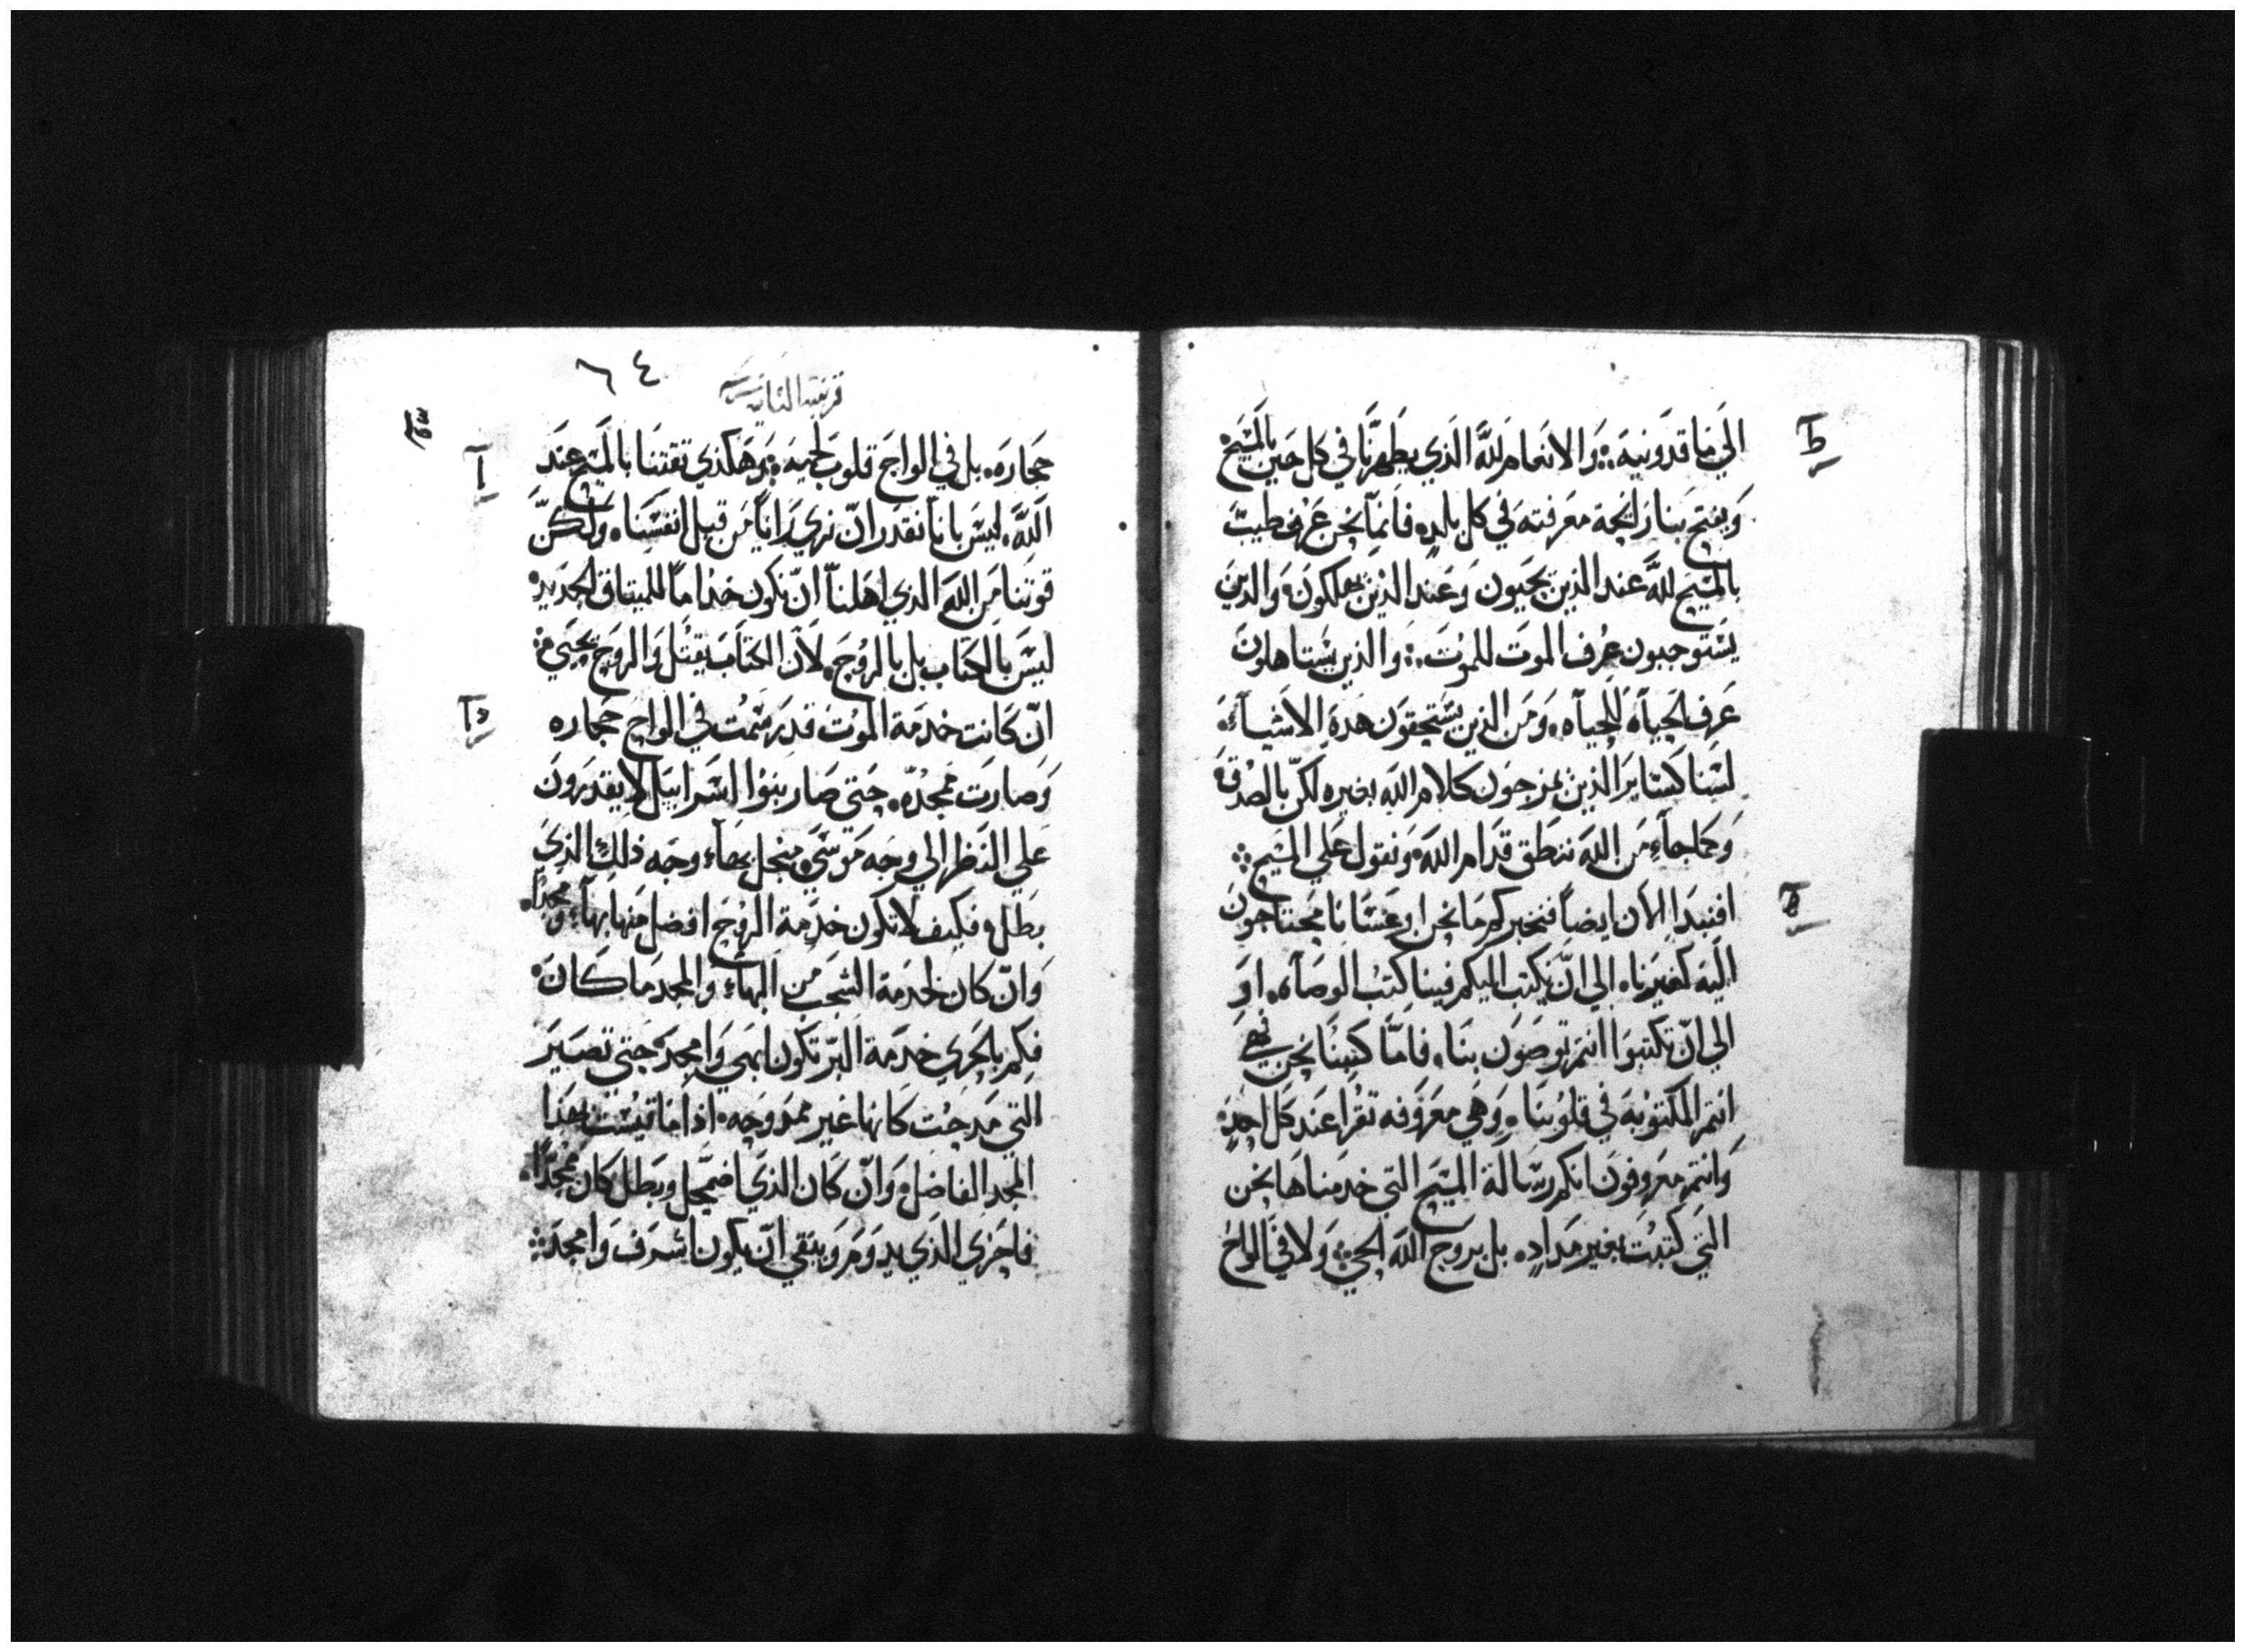 الي ماقدونيه ؞ والانعام لله الذي يظهرنا في كل حين بالمسيح
ويفتح بنا رايحة معرفته في كل بلد. فانما نحن عرف طيب
بالمسيح لله عند الذين يحيون وعند الذين يهلكون والذين
يستوجبون عرف الموت للموت ؞ والذين يستاهلون
عرف الحياه للحياه. ومن الذين يستحقون هذه الاشياء.
لسنا كساير الذين يمزجون كلام الله بغيره لكن بالصدق
وكما جاء من الله ننطق قدام الله ونقول علي المسيح ؞
افنبدا الان ايضاً فنخبركم ما نحن او عسانا محتاجون
اليه كغيرنا. الي ان يكتب اليكم فينا كتب الوصاه. او
الي ان تكتبوا انتم توصون بنا. فاما كتبنا نحن فهي
انتم المكتوبه في قلوبنا. وهي معروفه تقرا عند كل احد
وانتم معروفون انكم رسالة المسيح التي خدمناها نحن
التي كتبت بغير مداد. بل بروح الله الحي ؞ ولا في الواح
٦٤
قرنتيه الثانيه
حجاره. بل في الواح قلوب لحميه ؞ وهكذي ثقتنا بالمسيح عند
الله. ليس بانا نقدر ان نري راياً من قبل انفسنا. ولكن
قوتنا من الله الذي اهلنا ان نكون خداماً للميثاق الجديد.
ليس بالكتاب بل بالروح. لان الكتاب يقتل والروح يحيي ؞
ان كانت خدمة الموت قد رسمت في الواح حجاره
وصارت ممجده. حتي صار بنوا اسراييل لا يقدرون
علي النظر الي وجه موسي. من اجل بهاء وجه ذلك الذي
بطل. فكيف لا تكون خدمة الروح افضل منها بهاء ومجداً.
وان كان لخدمة الشجب من البهاء والمجد ما كان.
فكم بالحري خدمة البر تكون ابهي وامجد. حتي تصير
التي مدحت كانها غير ممدوحه. اذا ما قيست بهذا
المجد الفاضل. وان كان الذي اضمحل وبطل كان مجداً.
فاحري الذي يدوم ويبقي ان يكون اشرف وامجد ؞